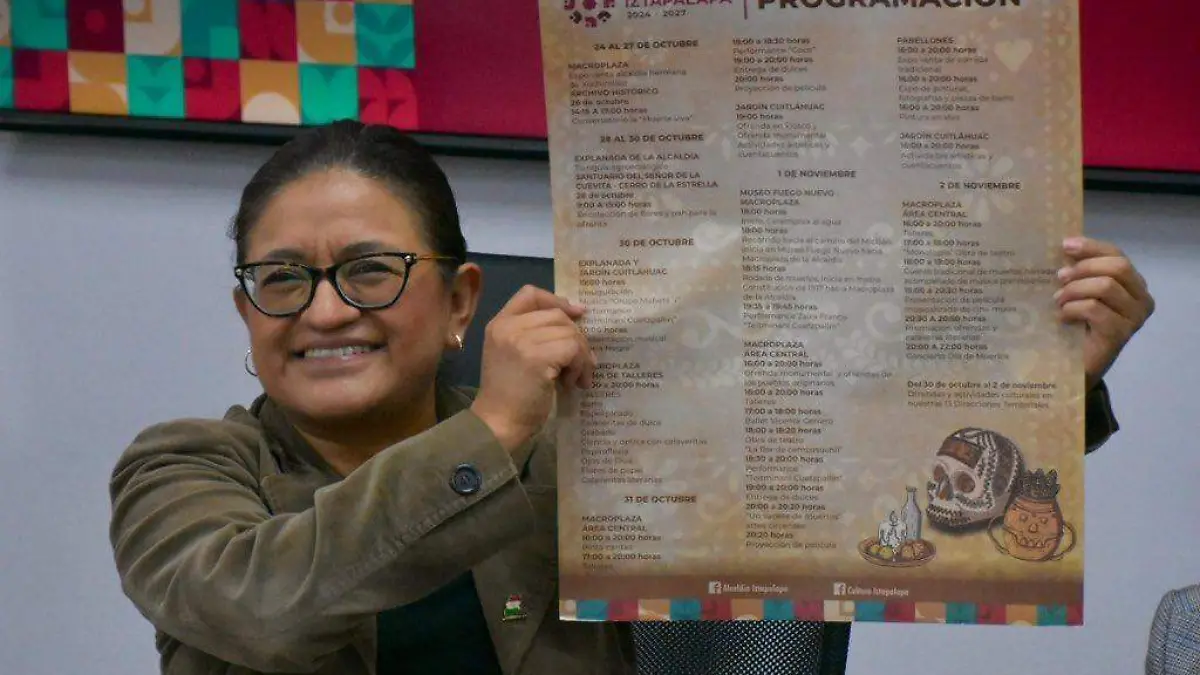 IZTAPALAPA
2024 - 2027
PROGRAMACIÓN
24 AL 27 DE OCTUBRE
MACROPLAZA
Expo venta alcaldía hermana
de Xochimilco
ARCHIVO HISTÓRICO
26 de octubre
Conversatorio la "Muerte viva"
28 AL 30 DE OCTUBRE
EXPLANADA DE LA ALCALDÍA
SANTUARIO DEL SEÑOR DE LA
CUEVITA - CERRO DE LA ESTRELLA
28 de octubre
9:00 A 15:00 horas
Recolección de flores y pan para la
ofrenta
30 DE OCTUBRE
EXPLANADA Y
JARDÍN CUITLÁHUAC
horas
Inauguración
"Teiminani Cuetzpallin"
horas
TALLERES
20:00 horas
Barro
Papel picado
Calaveritas de dulce
Grabado
Ciencia y óptica con calaveritas
Papiroflexia
Ojos de Dios
Flores de papel
Calaveritas literarias
31 DE OCTUBRE
MACROPLAZA
ÁREA CENTRAL
16:00 a 20:00 horas
17:00 a 20:00 horas
Talleres
18:00 a 18:30 horas
Performance "Coco"
19:00 a 20:00 horas
Entrega de dulces
20:00 horas
Proyección de película
JARDÍN CUITLÁHUAC
19:00 horas
Ofrenda en Kiosco y
Ofrenda monumental
Actividades artísticas y
cuentacuentos
1 DE NOVIEMBRE
MUSEO FUEGO NUEVO
MACROPLAZA
18:00 horas
18:00 horas
Recorrido hacia el camino del Mictlán
inicia en Museo Fuego Nuevo hacia
Macroplaza de la Alcaldía
18:15 horas
Rodada de muertos, inicia en metro
Constitución de 1917 hacia Macroplaza
de la Alcaldía
19:35 a 19:45 horas
Performance Zaira Franco
"Teiminani Cuetzpallin"
MACROPLAZA
ÁREA CENTRAL
16:00 a 20:00 horas
Ofrenda monumental y ofrendas de
los pueblos originarios
16:00 a 20:00 horas
Talleres
17:00 a 18:00 horas
Ballet Vicente Genaro
18:00 a 18:20 horas
Obra de teatro
"La flor de cempasúchil"
18:30 a 20:00 horas
Performance
"Teiminani Cuetzpallin"
19:00 a 20:00 horas
Entrega de dulces
20:00 a 20:20 horas
artes circenses
20:20 horas
Proyección de película
PABELLONES
16:00 a 20:00 horas
Expo venta de comida
tradicional
16:00 a 20:00 horas
Expo de pinturas,
fotografías y piezas de barro
16:00 A 20:00 horas
Pinturas en altos
JARDÍN CUITLÁHUAC
16:00 a 20:00 horas
Actividades artísticas y
cuentacuentos
2 DE NOVIEMBRE
MACROPLAZA
ÁREA CENTRAL
16:00 a 20:00 horas
Talleres
17:00 a 18:00 horas
Obra de teatro
18:00 a 19:00 horas
acompañado de música prehispánica
19:00 a 20:30 horas
Presentación de película
musicalizada de cine mudo
20:30 horas
Premiación ofrendas y
20:00 a 22:00 horas
Concierto Día de Muertos
Del 30 de octubre al 2 de noviembre
Ofrendas y actividades culturales en
nuestras 13 Direcciones Territoriales
Alcaldía Iztapalapa
Cultura Iztapalapa